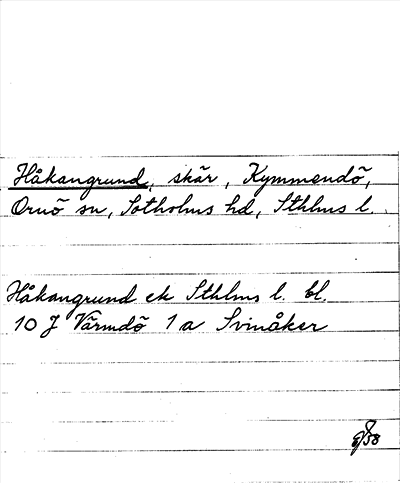 Håkangrund, skär, Kymmendö,
Ornö sn, Sotholms hd, Sthlms l.
Håkangrund ek Sthlms l. bl.
10 J Värmdö 1 a Svinåker
58